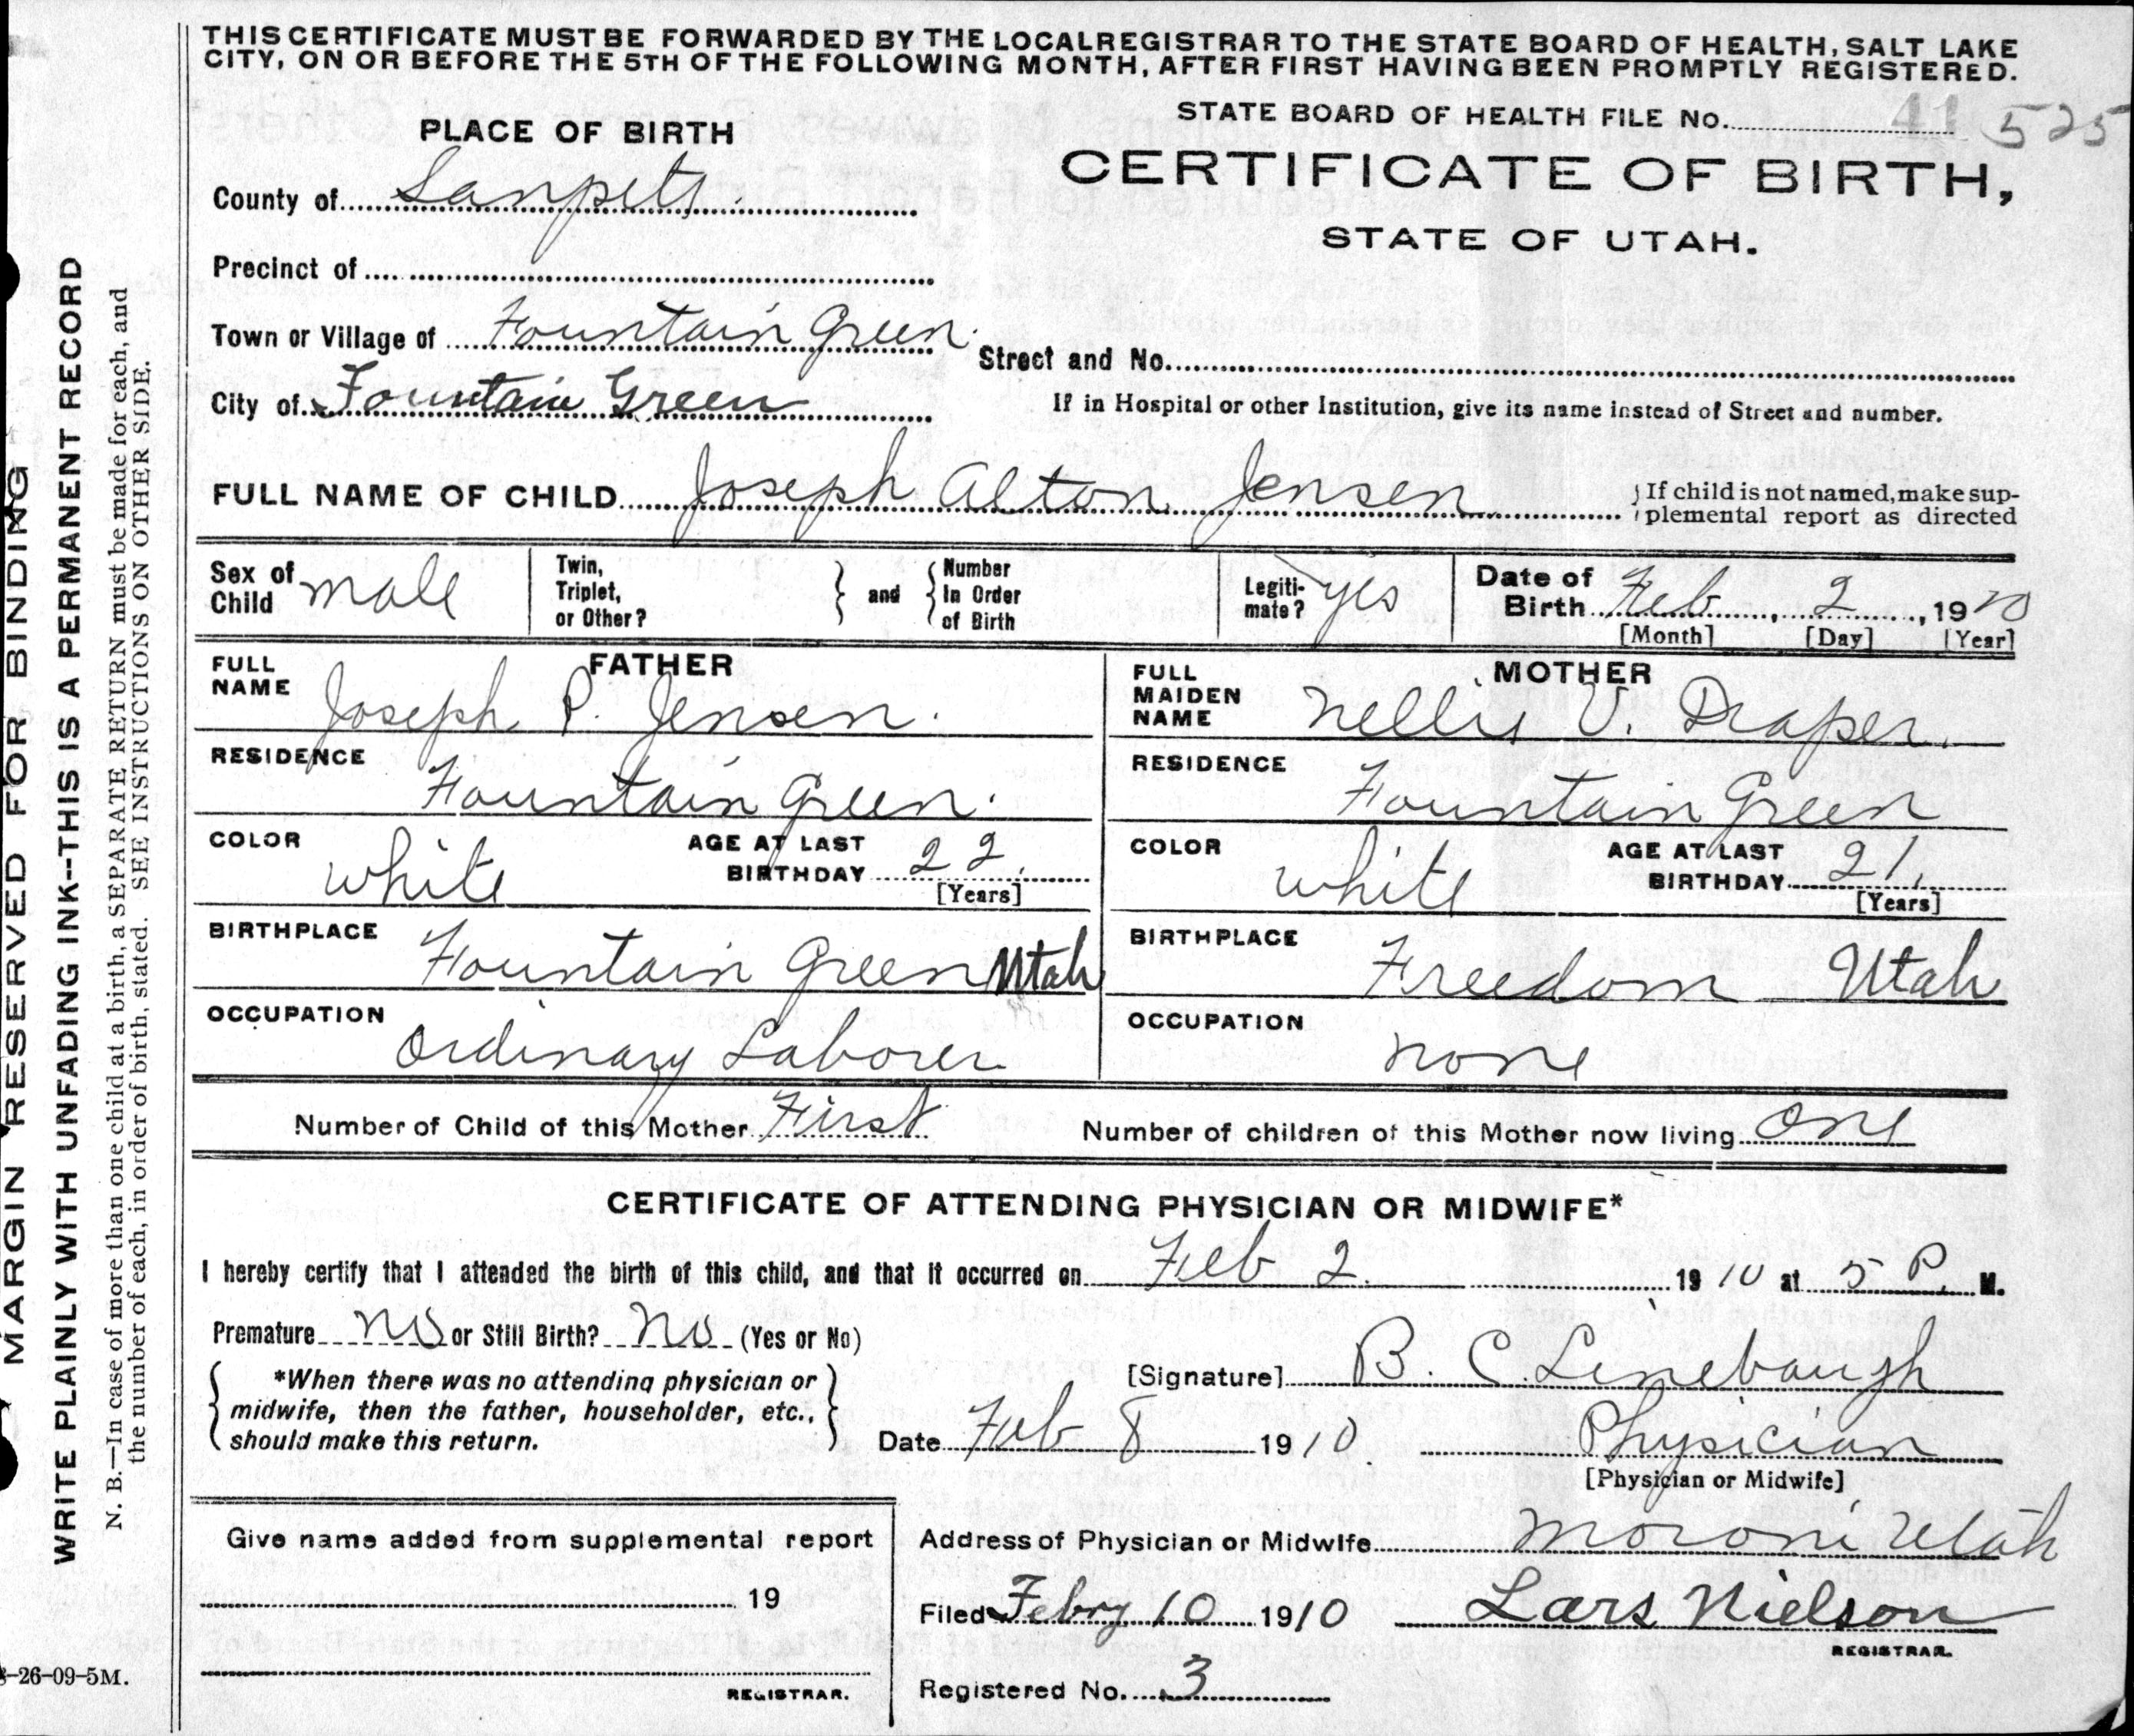 THIS CERTIFICATE MUST BE FORWARDED BY THE LOCAL REGISTRAR TO THE STATE BOARD OF HEALTH, SALT LAKE
CITY, ON OR BEFORE THE 5TH OF THE FOLLOWING MONTH, AFTER FIRST HAVING BEEN PROMPTLY REGISTERED.
STATE BOARD OF HEALTH FILE No. 41 525
PLACE OF BIRTH
CERTIFICATE OF BIRTH,
STATE OF UTAH.
County of Sanpete
Precinct of
Town or Village of Fountain Green
Street and No.
City of Fountain Green
If in Hospital or other Institution, give its name instead of Street and number.
FULL NAME OF CHILD Joseph Alton Jensen
If child is not named, make sup-
plemental report as directed
Sex of Child male
Twin, Triplet, or Other?
and
Number In Order of Birth
Legiti-mate? yes
Date of Birth Feb, 2, 1910
[Month] [Day] [Year]
FATHER
FULL NAME Joseph P. Jensen.
RESIDENCE Fountain Green.
COLOR white
AGE AT LAST BIRTHDAY 22.
[Years]
BIRTHPLACE Fountain Green Utah
OCCUPATION Ordinary Laborer
MOTHER
FULL MAIDEN NAME Nellie V. Draper.
RESIDENCE Fountain Green
COLOR white
AGE AT LAST BIRTHDAY 21.
[Years]
BIRTHPLACE Freedom Utah
OCCUPATION none
Number of Child of this Mother First
Number of children of this Mother now living one
CERTIFICATE OF ATTENDING PHYSICIAN OR MIDWIFE*
I hereby certify that I attended the birth of this child, and that it occurred on Feb 2. 1910 at 5 P. M.
Premature No or Still Birth? No (Yes or No)
*When there was no attending physician or
midwife, then the father, householder, etc.,
should make this return.
[Signature] B. C. Linebaugh
Date Feb 8 1910
Physician
[Physician or Midwife]
Give name added from supplemental report
19
REGISTRAR.
Address of Physician or Midwife Moroni Utah
Filed Febry 10 1910 Lars Nielson
REGISTRAR.
Registered No. 3
MARGIN RESERVED FOR BINDING
WRITE PLAINLY WITH UNFADING INK--THIS IS A PERMANENT RECORD
N. B.—In case of more than one child at a birth, a SEPARATE RETURN must be made for each, and
the number of each, in order of birth, stated. SEE INSTRUCTIONS ON OTHER SIDE.
-26-09-5M.